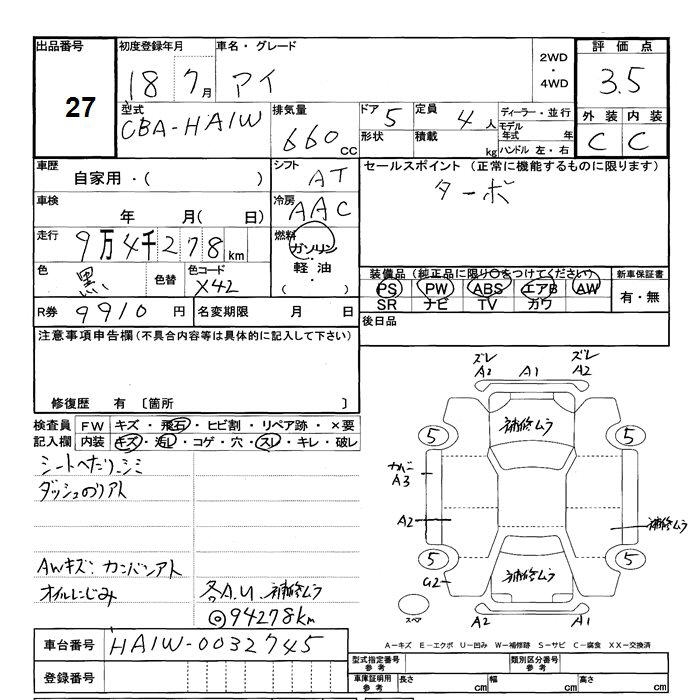 出品番号 27
初度登録年月 18 7月
車名・グレード アイ
2WD・4WD
評価点 3.5
外装 C 内装 C
型式 CBA-HA1W
排気量 660cc
ドア 5 定員 4人
形状 積載 kg
ディーラー・並行
モデル年式 年
ハンドル 左・右
車歴 自家用・( )
シフト AT
セールスポイント (正常に機能するものに限ります)
ターボ
車検 年 月( 日)
冷房 AAC
走行 9万4千278km
燃料 ガソリン・軽油・( )
色 黒 色替 色コード X42
装備品 (純正品に限り○をつけてください) 新車保証書
PS PW ABS エアB AW 有・無
SR ナビ TV カワ
R券 9910円 名変期限 月 日
後日品
注意事項申告欄(不具合内容等は具体的に記入して下さい)
修復歴 有 〔箇所 〕
検査員 FW キズ・飛石・ヒビ割・リペア跡・×要
記入欄 内装 キズ・汚レ・コゲ・穴・スレ・キレ・破レ
シートヘたり、シミ
ダッシュのりアト
AWキズ、カンバンアト
オイルにじみ
各A.U 補修ムラ
◎94278km
ズレ A2 A1 ズレ A2
補修ムラ
5 5
A3
A2
補修ムラ
5 5
補修ムラ
スペア
A2 A1
A-キズ E-エクボ U-凹み W-補修跡 S-サビ C-腐食 XX-交換済
車台番号 HA1W-0032745
登録番号
型式指定番号 参考 類別区分番号 参考
車庫証明用 参考 長さ cm 幅 cm 高さ cm